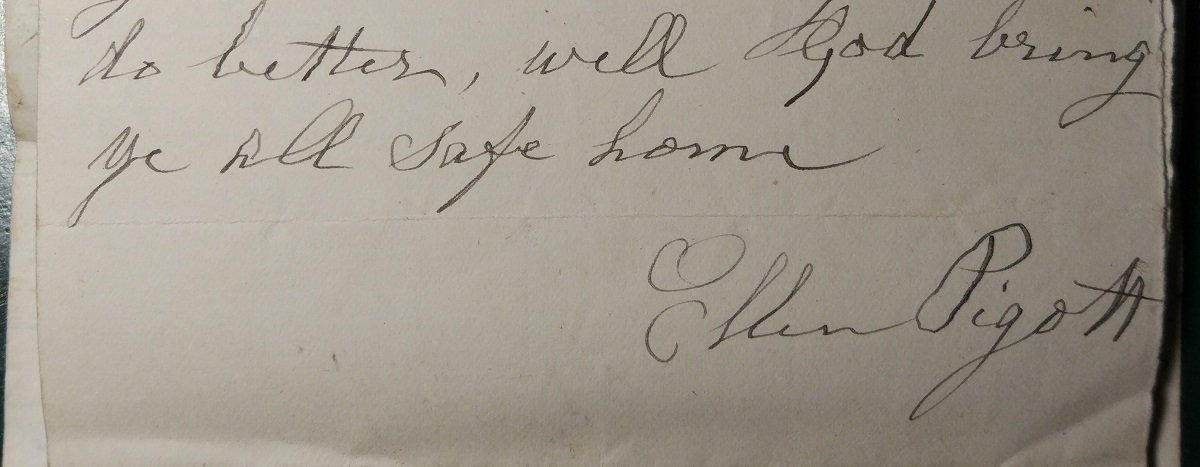 do better, well God bring
ye all safe home
Ellen Pigott